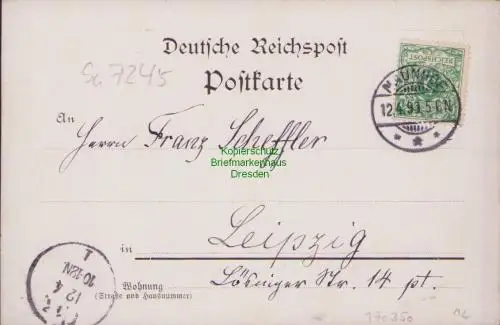 Deutsche Reichspost
Postkarte
Sc. 7245
REICHSPOST
12.4.93.5-6N.
An Herrn Franz Scheffler
Kopierschutz
Briefmarkenhaus
Dresden
in Leipzig
Wohnung
(Straße und Hausnummer)
Lösniger Str. 14 pt.
1
10-12N
12 4